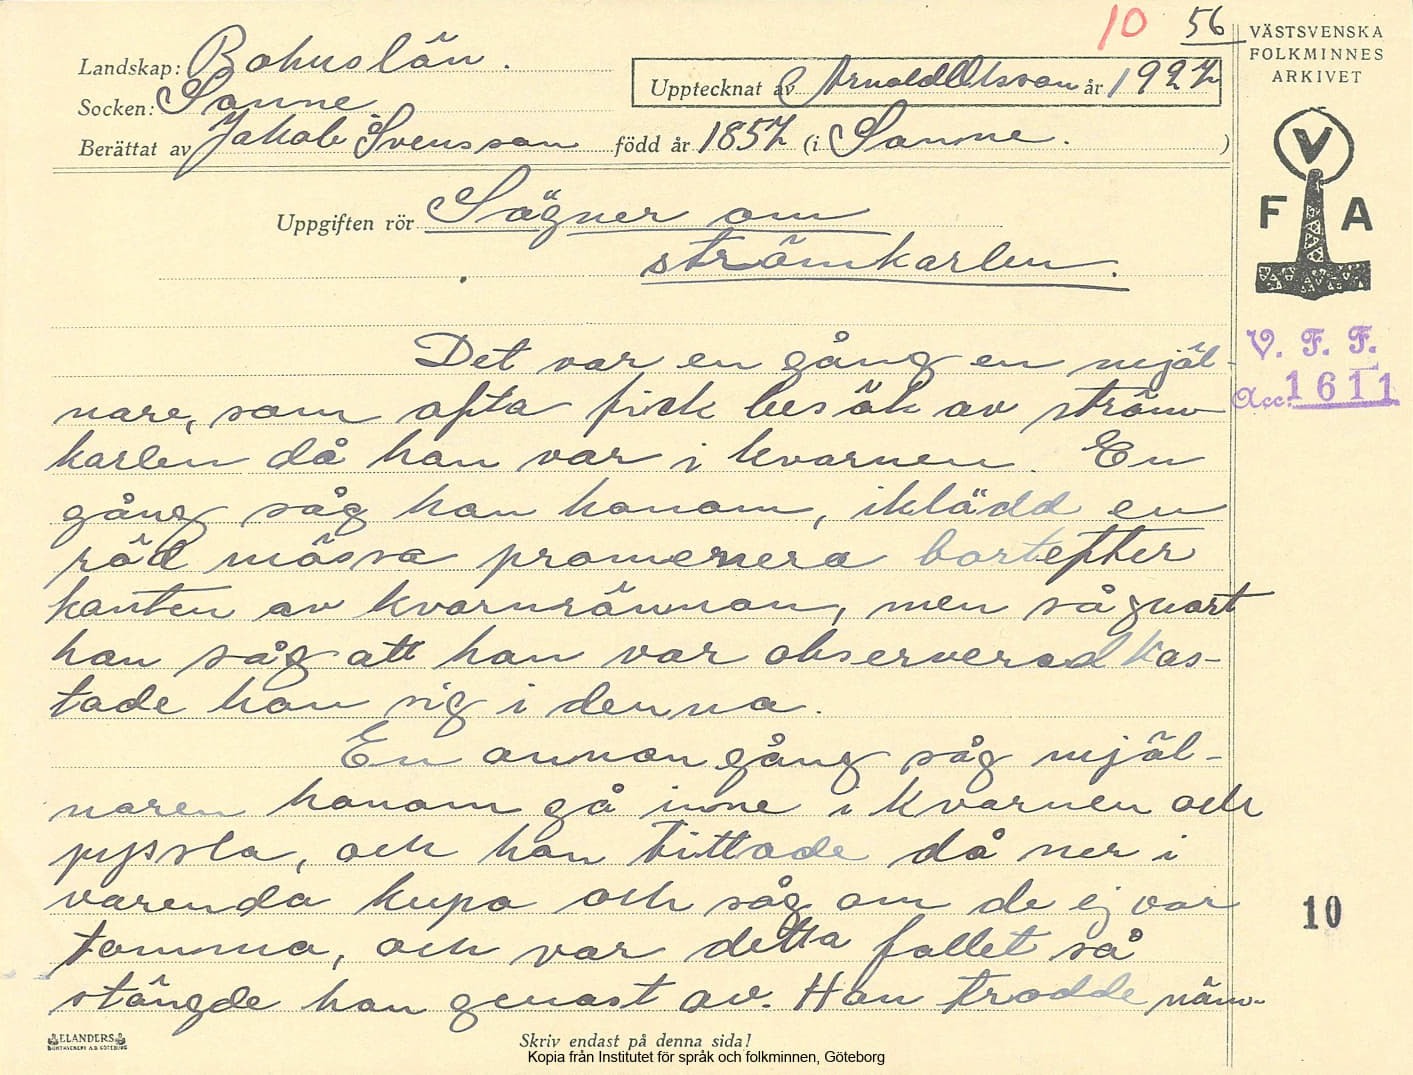 10 56
VÄSTSVENSKA
FOLKMINNES
ARKIVET
Landskap: Bohuslän.
Upptecknat av Arnold Olsson år 1927
Socken: Sanne
Berättat av Jakob Svensson född år 1857 (i Sanne. )
V
F A
Uppgiften rör Sägner om
strömkarlen.
V. F. F.
Acc. 1611
Det var en gång en mjöl-
nare, som ofta fick besök av ström-
karlen då han var i kvarnen. En
gång såg han honom, iklädd en
röd mössa promenera bort efter
kanten av kvarnrännan, men så snart
han såg att han var observerad kas-
tade han sig i denna.
En annan gång såg mjöl-
naren honom gå inne i kvarnen och
pyssla, och han tittade då ner i
varenda kupa och såg om de ej var
tomma, och var detta fallet så
stängde han genast av. Han trodde näm-
10
ELANDERS
BOKTRYCKERI A.B. GÖTEBORG
Skriv endast på denna sida!
Kopia från Institutet för språk och folkminnen, Göteborg